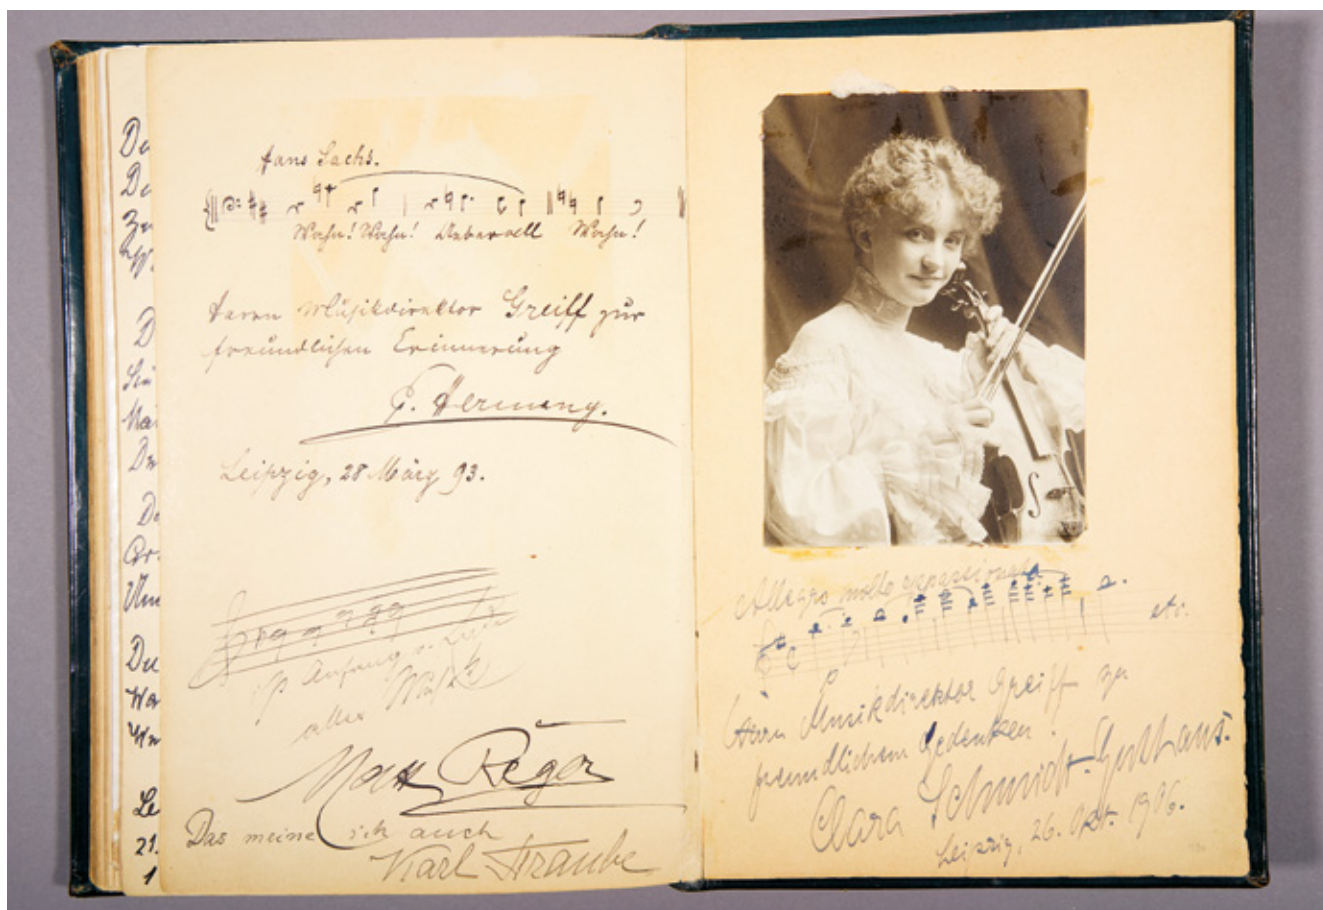 Hans Sachs.
Wahn! Wahn! Ueberall Wahn!
Herrn Musikdirektor Greiff zur
freundlichen Erinnerung
Leipzig, 28 März 93.
ist Anfang u. Ende
aller Musik
Max Reger
Das meine ich auch
Karl Straube
De
De
D
Du
Wa
Le
21.
1
Allegro molto appassionato.
etc.
Herrn Musikdirektor Greiff zu
freundlichem Gedenken!
Clara Schmidt-Guthaus.
Leipzig, 26. Okt. 1906.